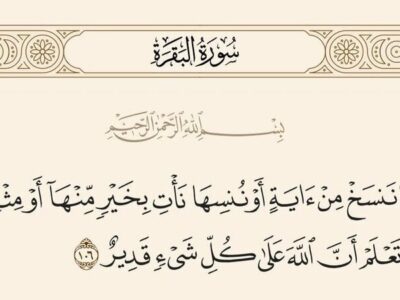 سُورَةُ البَقَرَةِ
بِسْمِ اللَّهِ الرَّحْمَٰنِ الرَّحِيمِ
نَنسَخْ مِنْ ءَايَةٍ أَوْ نُنسِهَا نَأْتِ بِخَيْرٍ مِّنْهَآ أَوْ
تَعْلَمْ أَنَّ ٱللَّهَ عَلَىٰ كُلِّ شَىْءٍ قَدِيرٌ ١٠٦